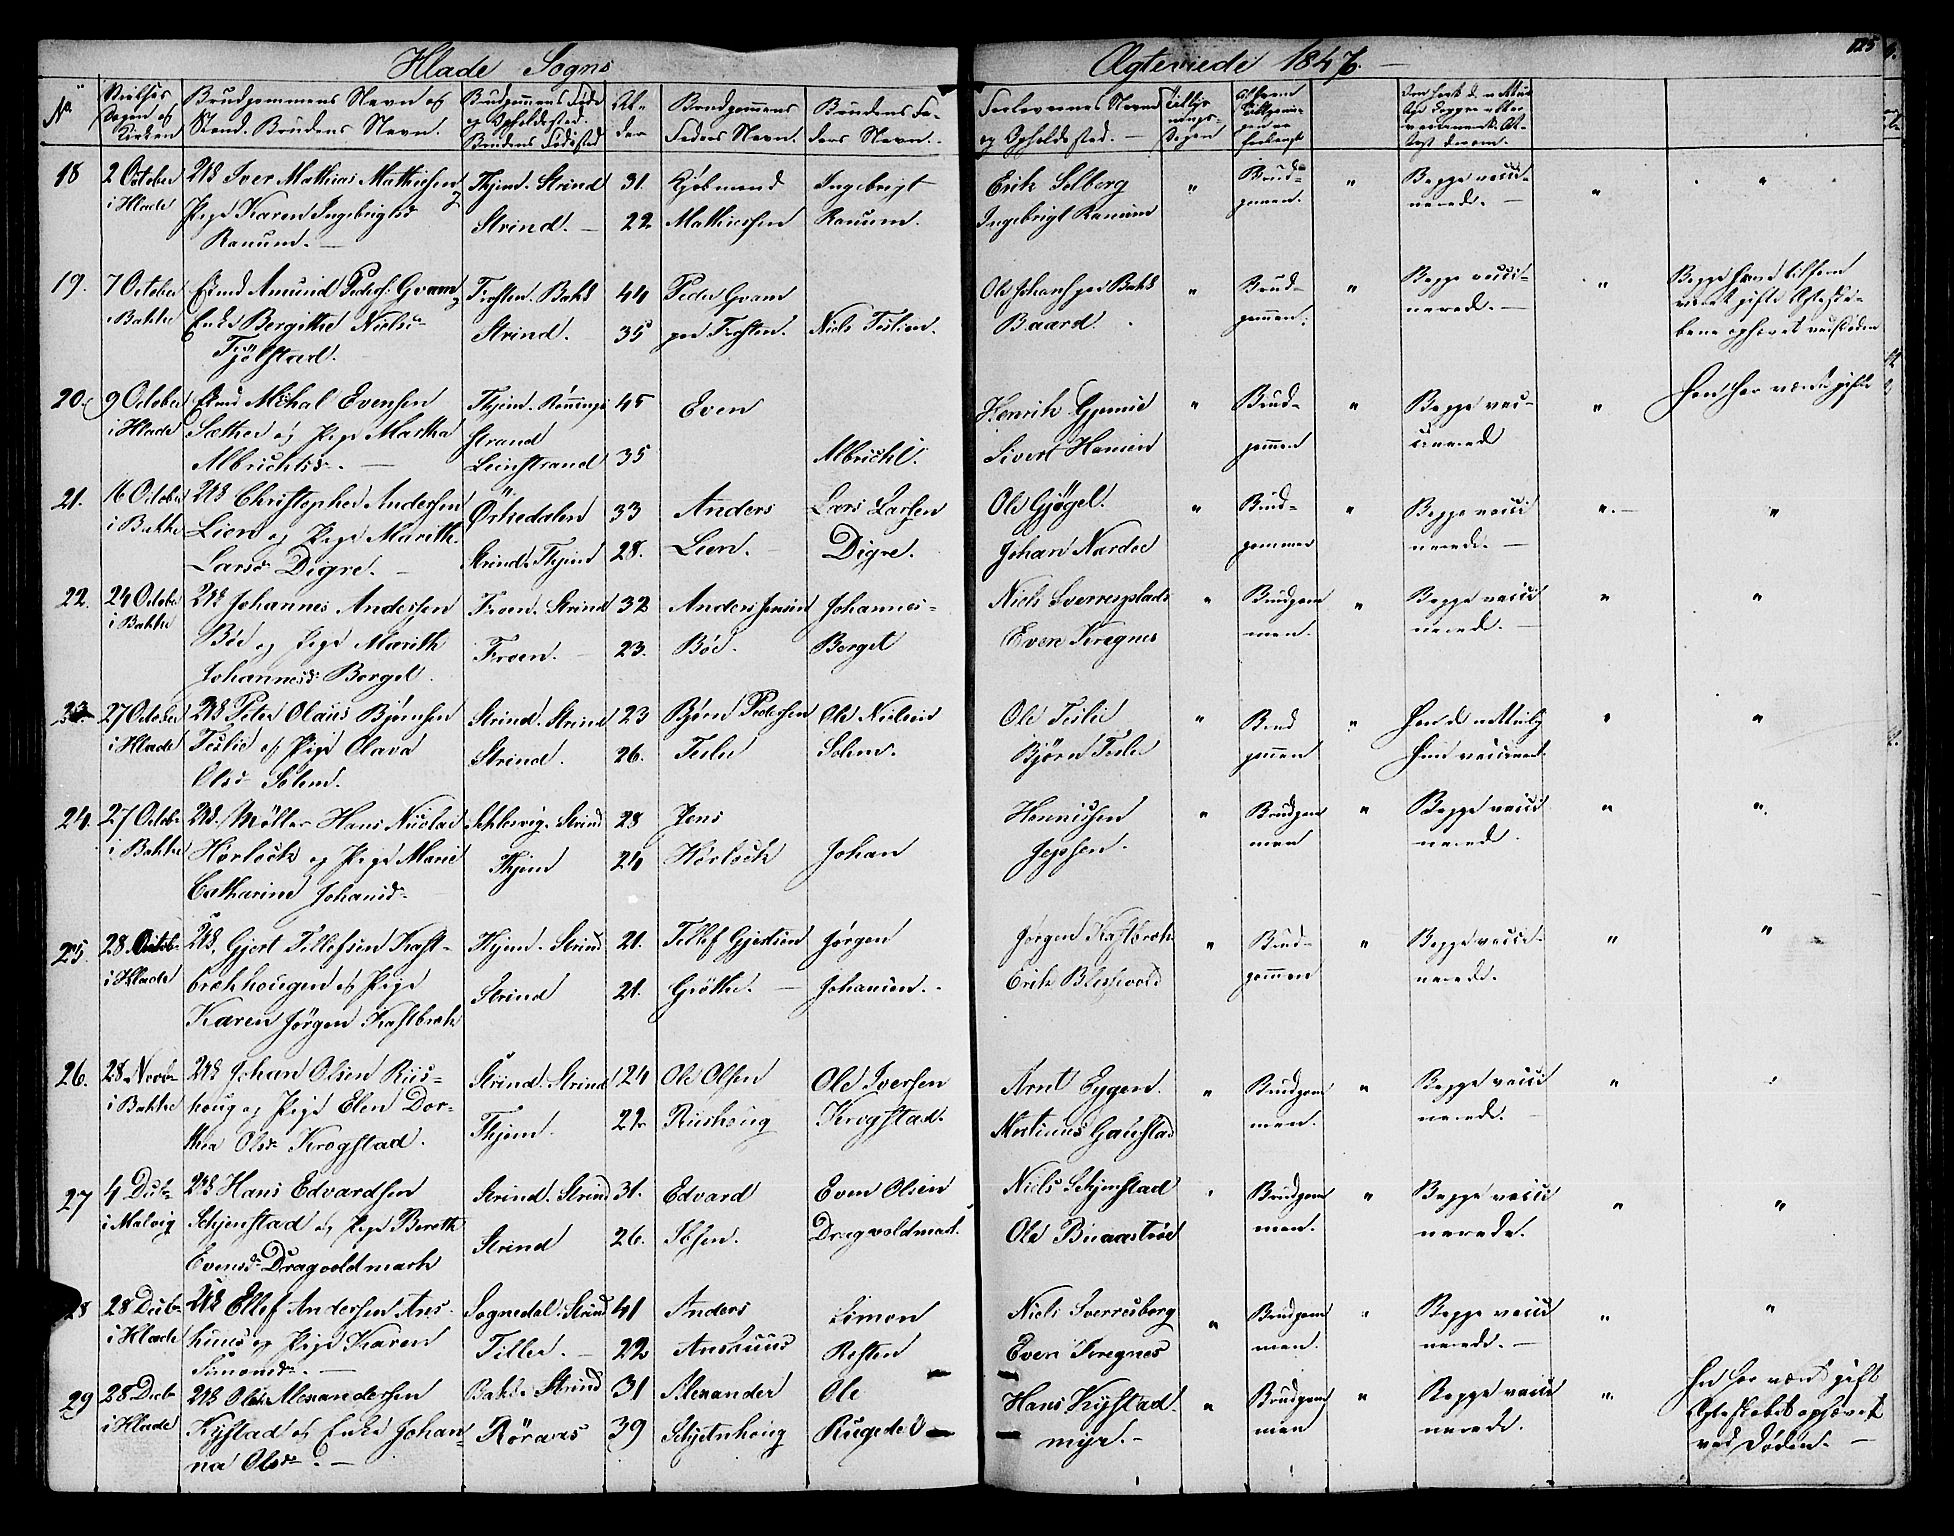 Hlade Sogns
Ægteviede 1847.
125
No
Vielses Dagen og Kirken
Brudgommens Navn og Stand. Brudens Navn.
Brudgommens Føde og Opholdssted. Brudens Fødested
Al-der
Brudgommens Faders Navn.
Brudens Faders Navn.
Forlovernes Navne og Opholdssted.
18
2 October i Hlade
UK Iver Mathias Mathiesen og
Pige Karen Ingebrigtsd
Ranum.
Thjem. Strind
Strind.
31.
22
Kjøbmand
Mathiesen
Ingebrigt
Ranum.
Erik Solberg
Ingebrigt Ranum
Brudgommen.
Begge vaccinerede.
19.
7 October
Bakke
Enkmd Amund Peders. Gvam og
Enke Bergitha Niels-
Fjølstad.
Frosten. Bakl
Strind.
44
35
Peder Gvam
paa Frosten.
Niels Teslien.
Ole Johans. paa Bakl
Baard.
Brudgommen.
Begge vaccinerede.
20.
9 October
i Hlade
Enkmd Michal Evensen
Sæther og Pige Martha
Albrichtsd.
Thjem. Rønnings
Strand
Leinstrand
45
35
Even
Albricht.
Henrik
Sivert Hansen
Brudgommen
Begge vaccinerede
Han har været gift
21.
16 October
i Bakke
UK Christopher Andersen
Lien og Pige Marith
Larsd Digre.
Ørkedalen
Strind. Thjem
33
28.
Anders
Lien.
Lars Larsen
Digre.
Ole Gjøgel.
Johan Nardoe
Brudgommen
Begge vaccinerede.
22.
24 Octobr
i Bakke
UK Johannes Andersen
Böe og Pige Marith
Johannesd. Borgel.
Froen. Strind
Froen.
32
23.
Anders Jensen
Böe.
Johannes
Borgel
Niels Sverresplads
Even Kregnes
Brudgommen.
Begge vaccinerede.
23
27 October
i Hlade
UK Peter Olaus Bjørnsen
Teslie og Pige Olava
Olsd Solem.
Strind. Strind
Strind.
23
26.
Bjørn Pedersen
Teslie
Ole Nielsen
Solem.
Ole Teslie
Bjørn Teslie
Brudgommen
24.
27 Octobr
i Bakke
UK. Møller Hans Nicolai
Horlock og Pige Marie
Catharina Johansd.
Schlesvig. Strind
Thjem
28
24
Jens
Horlock
Johan
Hennissen
Jepsen.
Brudgommen
Begge vaccinerede.
25.
28. Octob.
i Hlade
UK. Gjert Tellefsen Kast-
brekhougen og Pige
Karen Jørgen Kastbrek
Thjem. Strind
Strind
21.
21.
Tellef Gjertsen
Grøtte.
Jørgen
Johansen.
Jørgen Kastbrek
Erik
Brudgommen
Begge vaccinerede.
26.
28. Novbr
i Bakke
UK Johan Olsen Riis-
houg og Pige Elen Dor-
thea Olsd. Krogstad.
Strind. Strind
Thjem.
24
22
Ole Olsen
Riishoug
Ole Iversen
Krogstad.
Arnt Eggen.
Martinus Gaustad
Brudgommen.
Begge vaccinerede.
27
4 Dcbr
i Malvig
UK Hans Edvardsen
Schjenstad og Pige Bereth
Evensd. Dragvoldmark
Strind. Strind
Strind
31.
26.
Edvard
Ibsen.
Even Olsen
Dragvoldmark
Niels Schjenstad
Ole
Brudgommen.
Begge vaccinerede.
28
28 Dcbr
i Hlade
UK Ellef Andersen Ans-
huus og Pige Karen
Simonsd.
Sognedal. Strind
Tiller.
41
22
Anders
Anshuus
Simon
Røsten
Niels Sverresborg
Even Kregnes
Brudgommen.
Begge vaccinerede.
29
28 Dcbr
i Hlade
UK Ole Alexandersen
Kystad og Enke Johan-
na Olsd.
Bakl. Strind
Röraas
31
39
Alexander
Schjetnhoug
Ole
Rugedel
Hans Kystad-
myr.
Brudgommen
Begge vaccinerede.
Han har været gift
Ægteskabet ophævet
ved Døden.